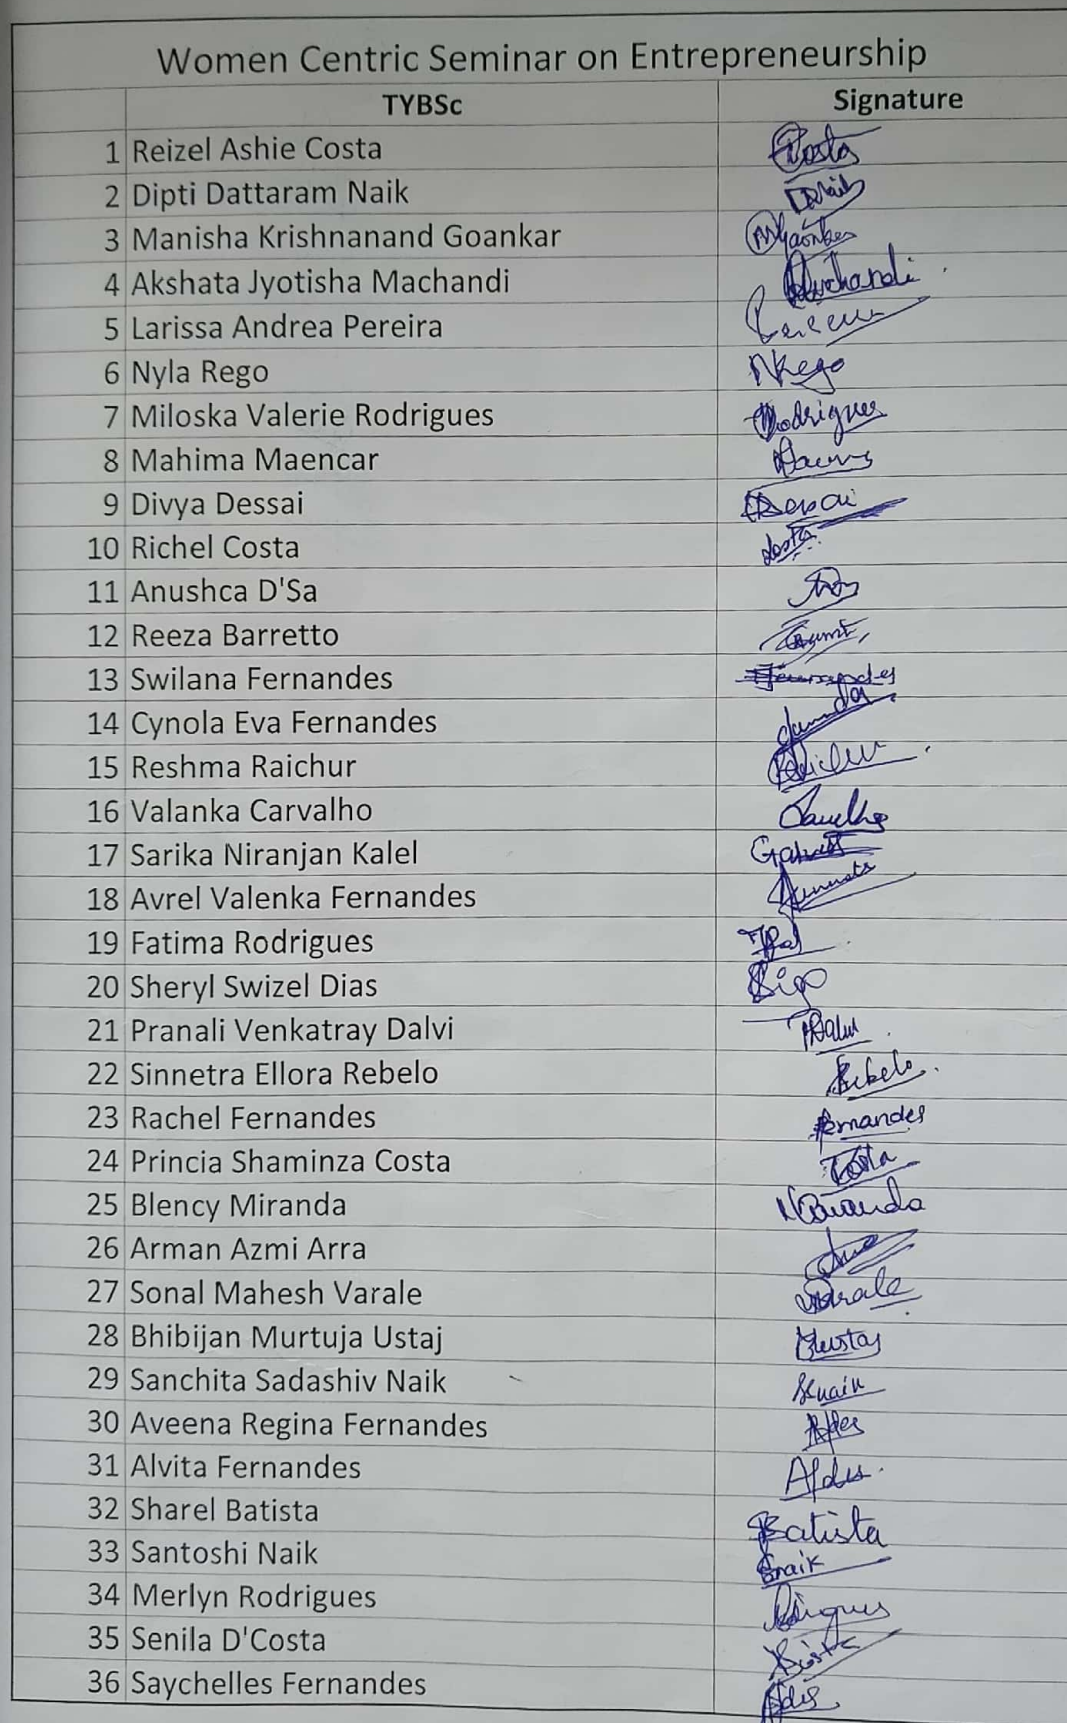 Women Centric Seminar on Entrepreneurship
TYBSc Signature
1 Reizel Ashie Costa Costa
2 Dipti Dattaram Naik DNaik
3 Manisha Krishnanand Goankar
4 Akshata Jyotisha Machandi
5 Larissa Andrea Pereira
6 Nyla Rego NRego
7 Miloska Valerie Rodrigues Rodrigues
8 Mahima Maencar
9 Divya Dessai Dessai
10 Richel Costa
11 Anushca D'Sa
12 Reeza Barretto
13 Swilana Fernandes
14 Cynola Eva Fernandes
15 Reshma Raichur
16 Valanka Carvalho
17 Sarika Niranjan Kalel
18 Avrel Valenka Fernandes
19 Fatima Rodrigues
20 Sheryl Swizel Dias
21 Pranali Venkatray Dalvi
22 Sinnetra Ellora Rebelo Rebelo
23 Rachel Fernandes Fernandes
24 Princia Shaminza Costa Costa
25 Blency Miranda
26 Arman Azmi Arra
27 Sonal Mahesh Varale Varale
28 Bhibijan Murtuja Ustaj
29 Sanchita Sadashiv Naik
30 Aveena Regina Fernandes
31 Alvita Fernandes
32 Sharel Batista Batista
33 Santoshi Naik Snaik
34 Merlyn Rodrigues
35 Senila D'Costa
36 Saychelles Fernandes